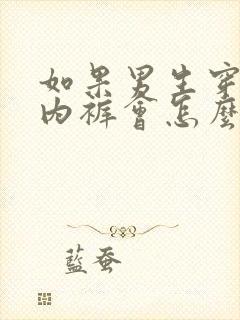 如果男生穿
内裤会怎麼
藍蚕